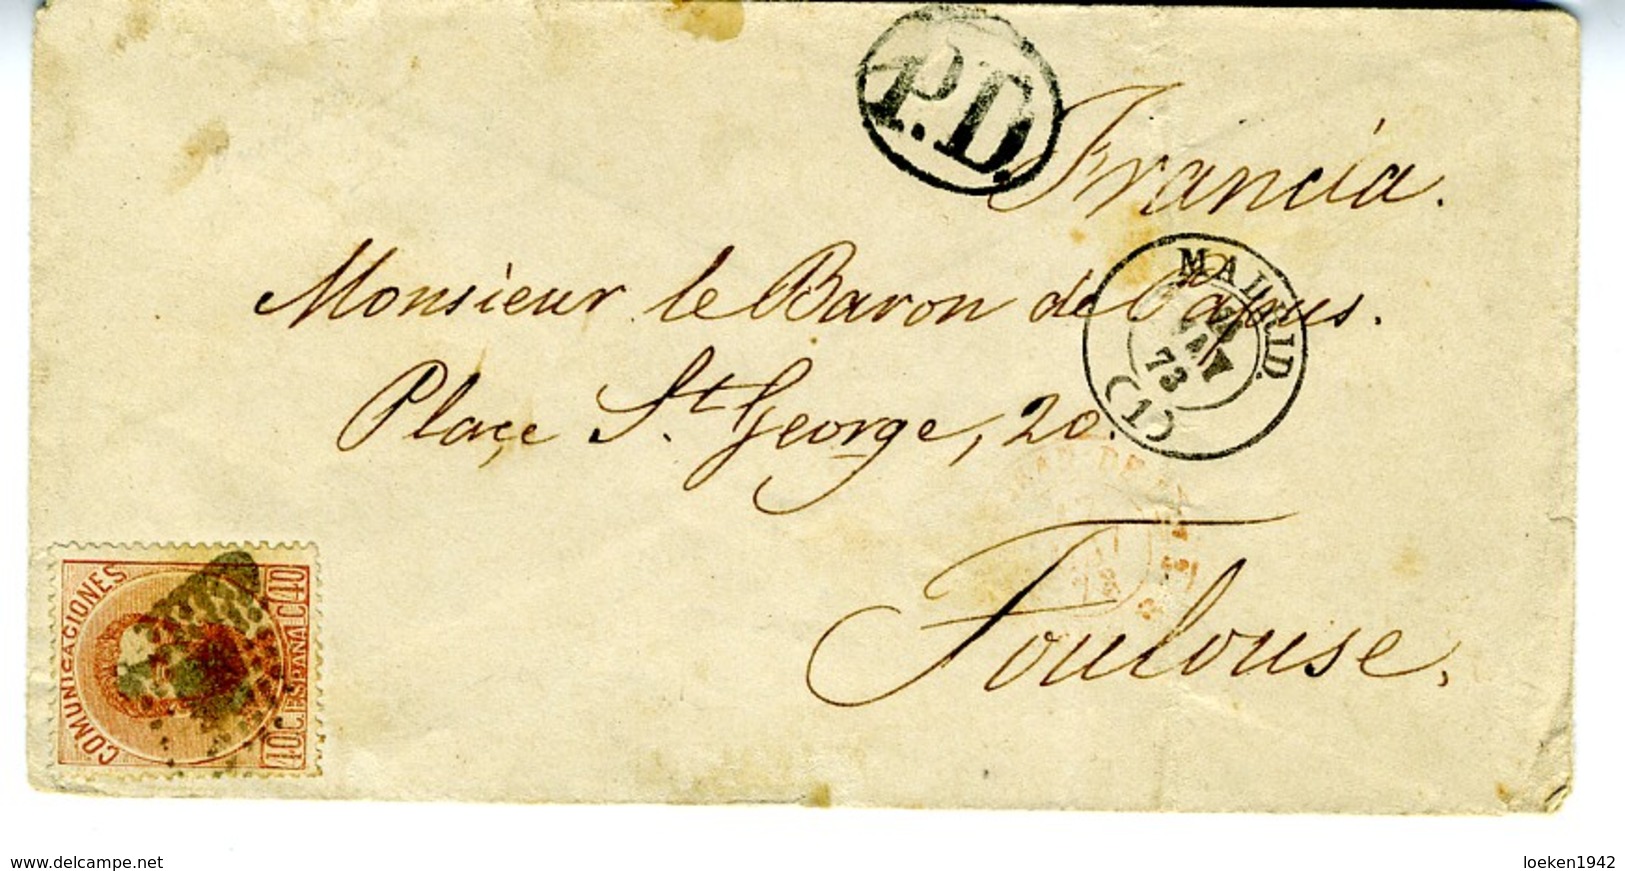 P.D.
Francia.
Monsieur le Baron de Capus.
MADRID.
73
(1)
Place St George, 20.
Toulouse.
COMUNICACIONES
40 C. ESPAÑA C 40
www.delcampe.net
loeken1942